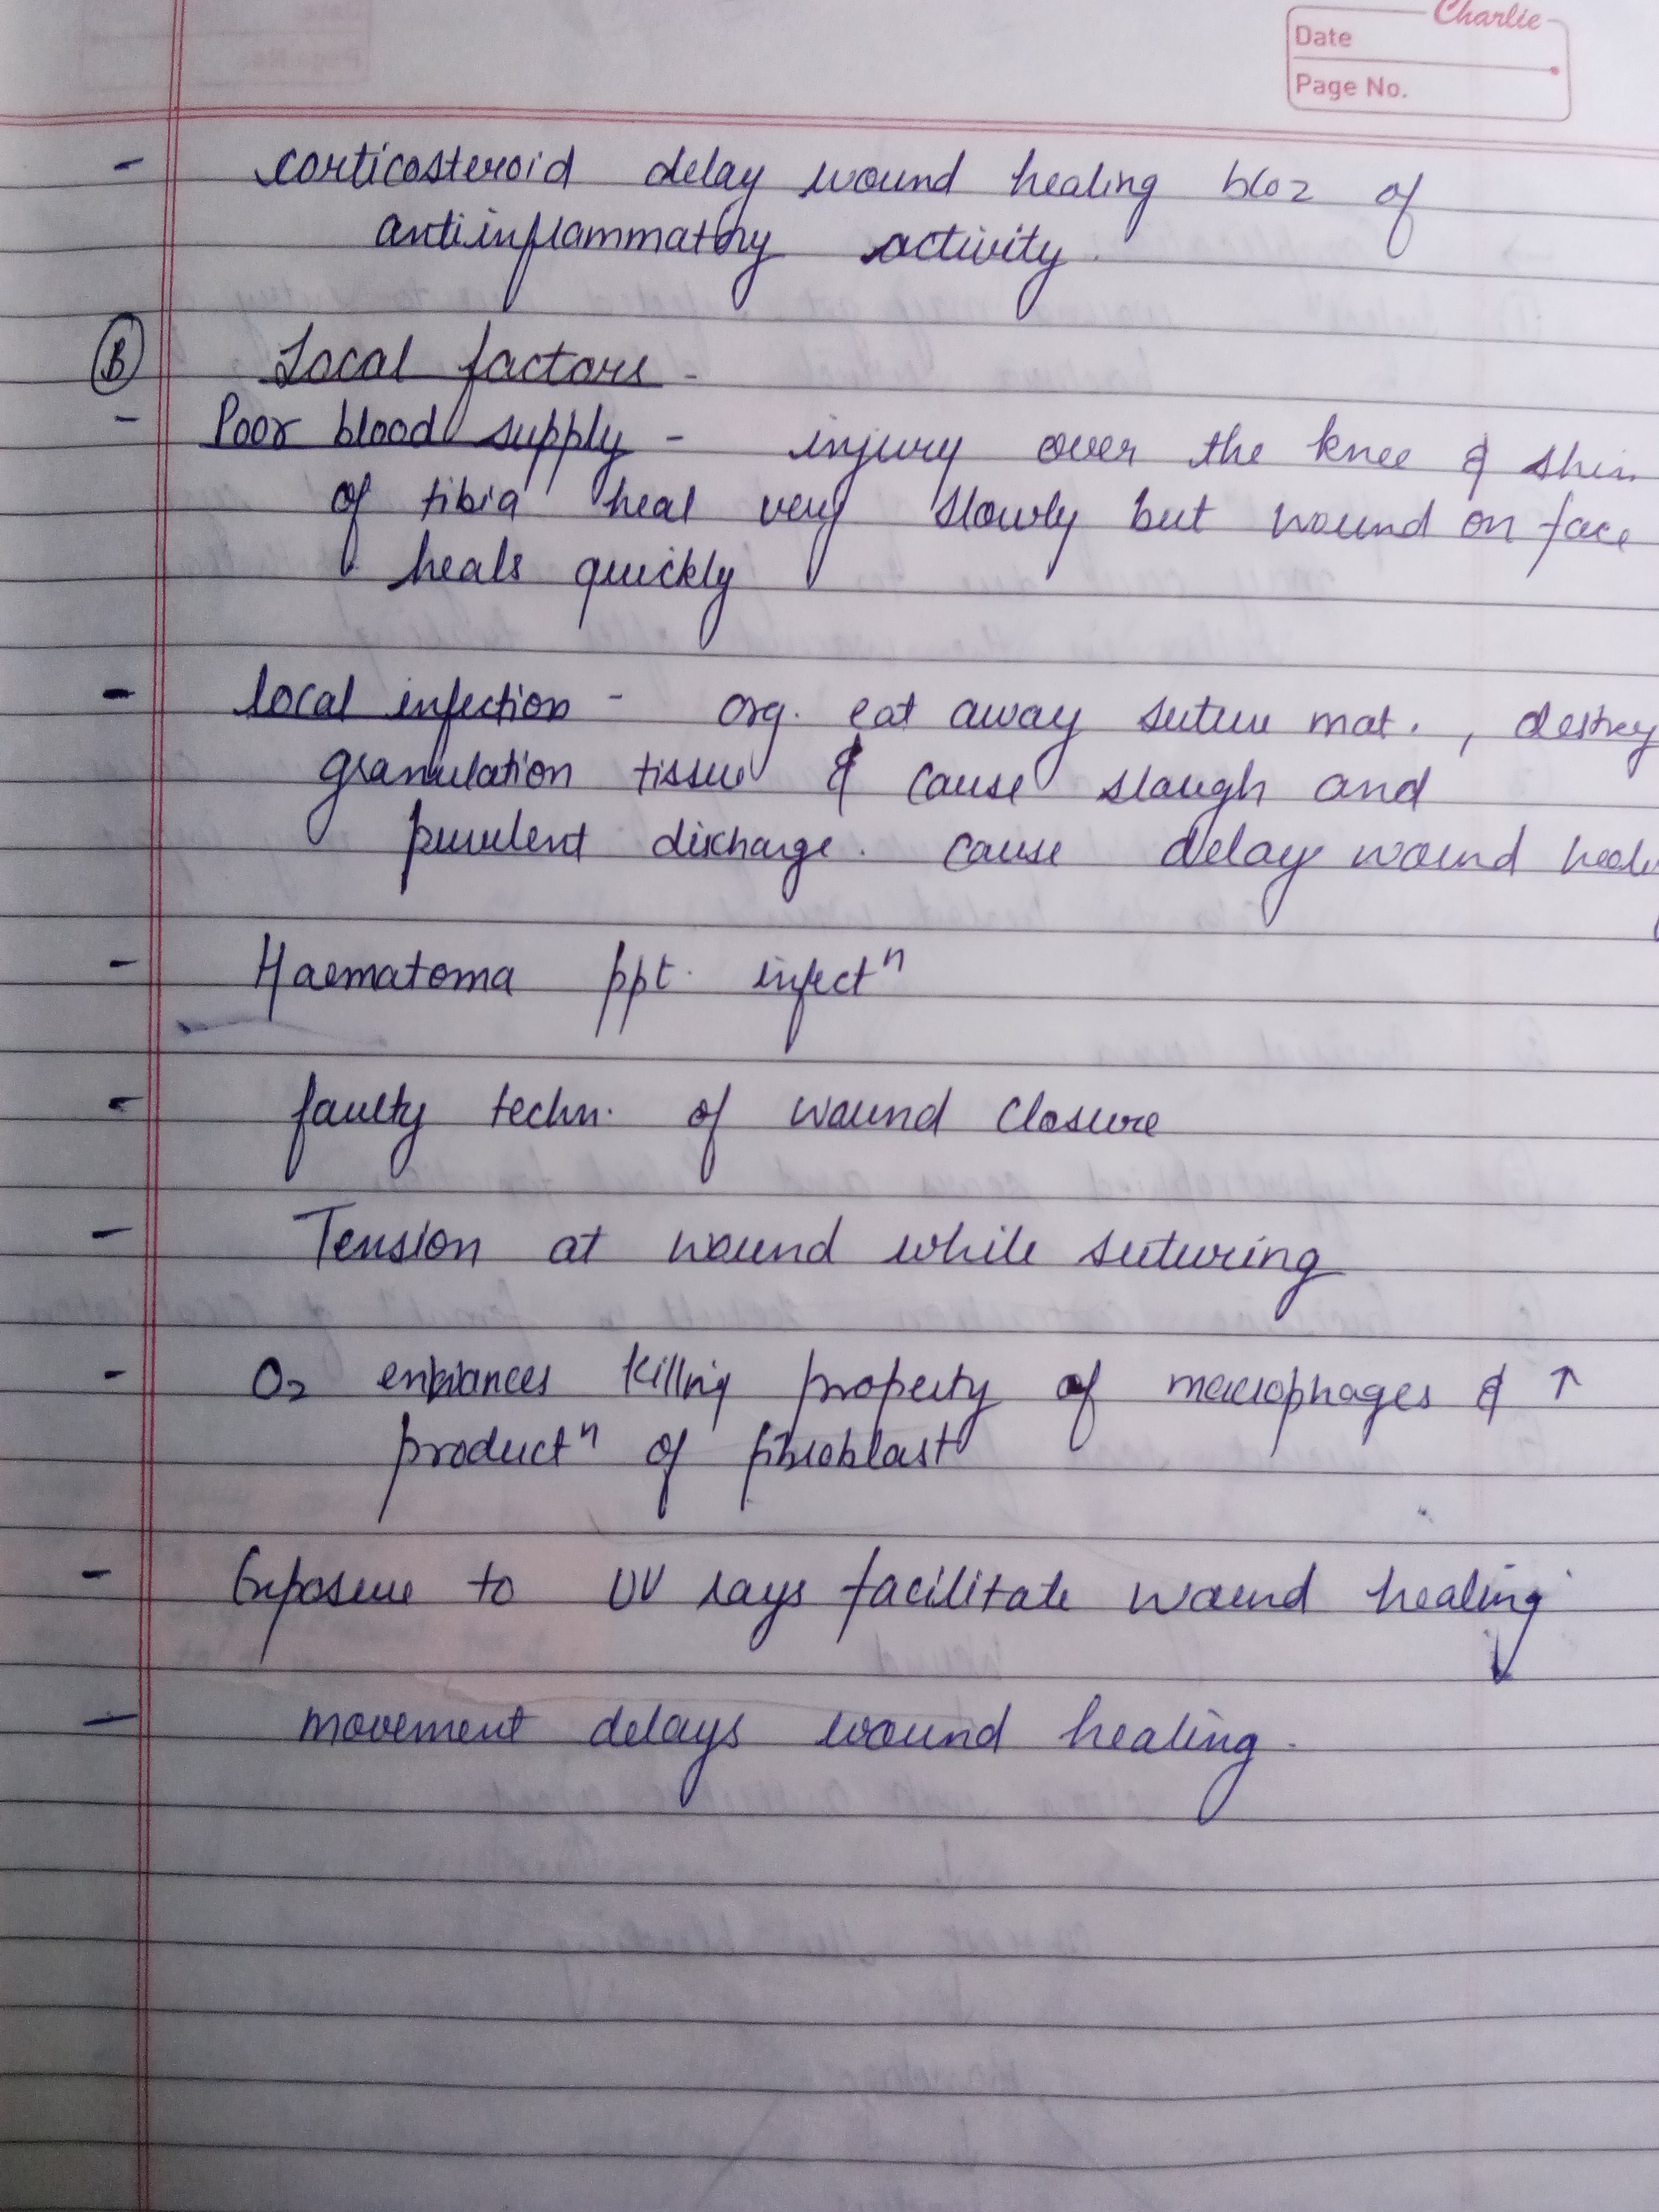 Charlie
Date
Page No.
- corticosteroid delay wound healing bcoz of
antiinflammatory activity.
(B) Local factors -
- Poor blood supply - injury over the knee & shin
of tibia heal very slowly but wound on face
heals quickly
- local infection - org. eat away suture mat. , destroy
granulation tissue & cause slough and
purulent discharge. cause delay wound healing
- Haematoma ppt. infectⁿ
- faulty techn. of wound closure
- Tension at wound while suturing
- O₂ enhances killing property of macrophages & ↑
productⁿ of fibroblast
- Exposure to UV rays facilitate wound healing
↓
- movement delays wound healing.